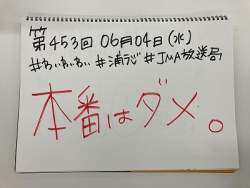 第453回 06月04日(水)
#わいわい #浦ラジ #JMA放送局
本番はダメ。